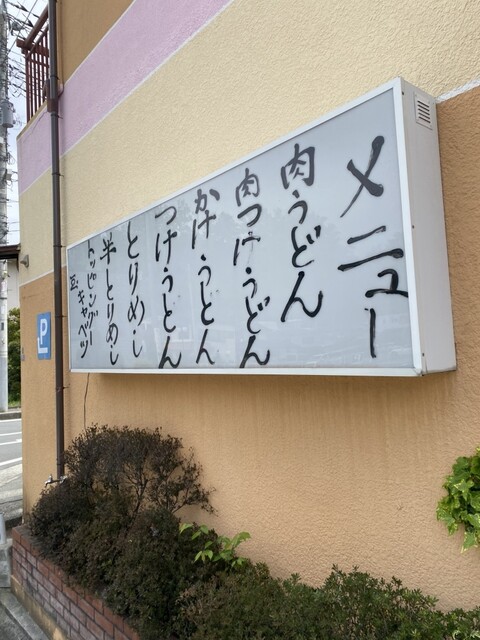 メニュー
肉うどん
肉つけうどん
かけうどん
つけうどん
とりめし
半とりめし
トッピング
玉、キャベツ
P